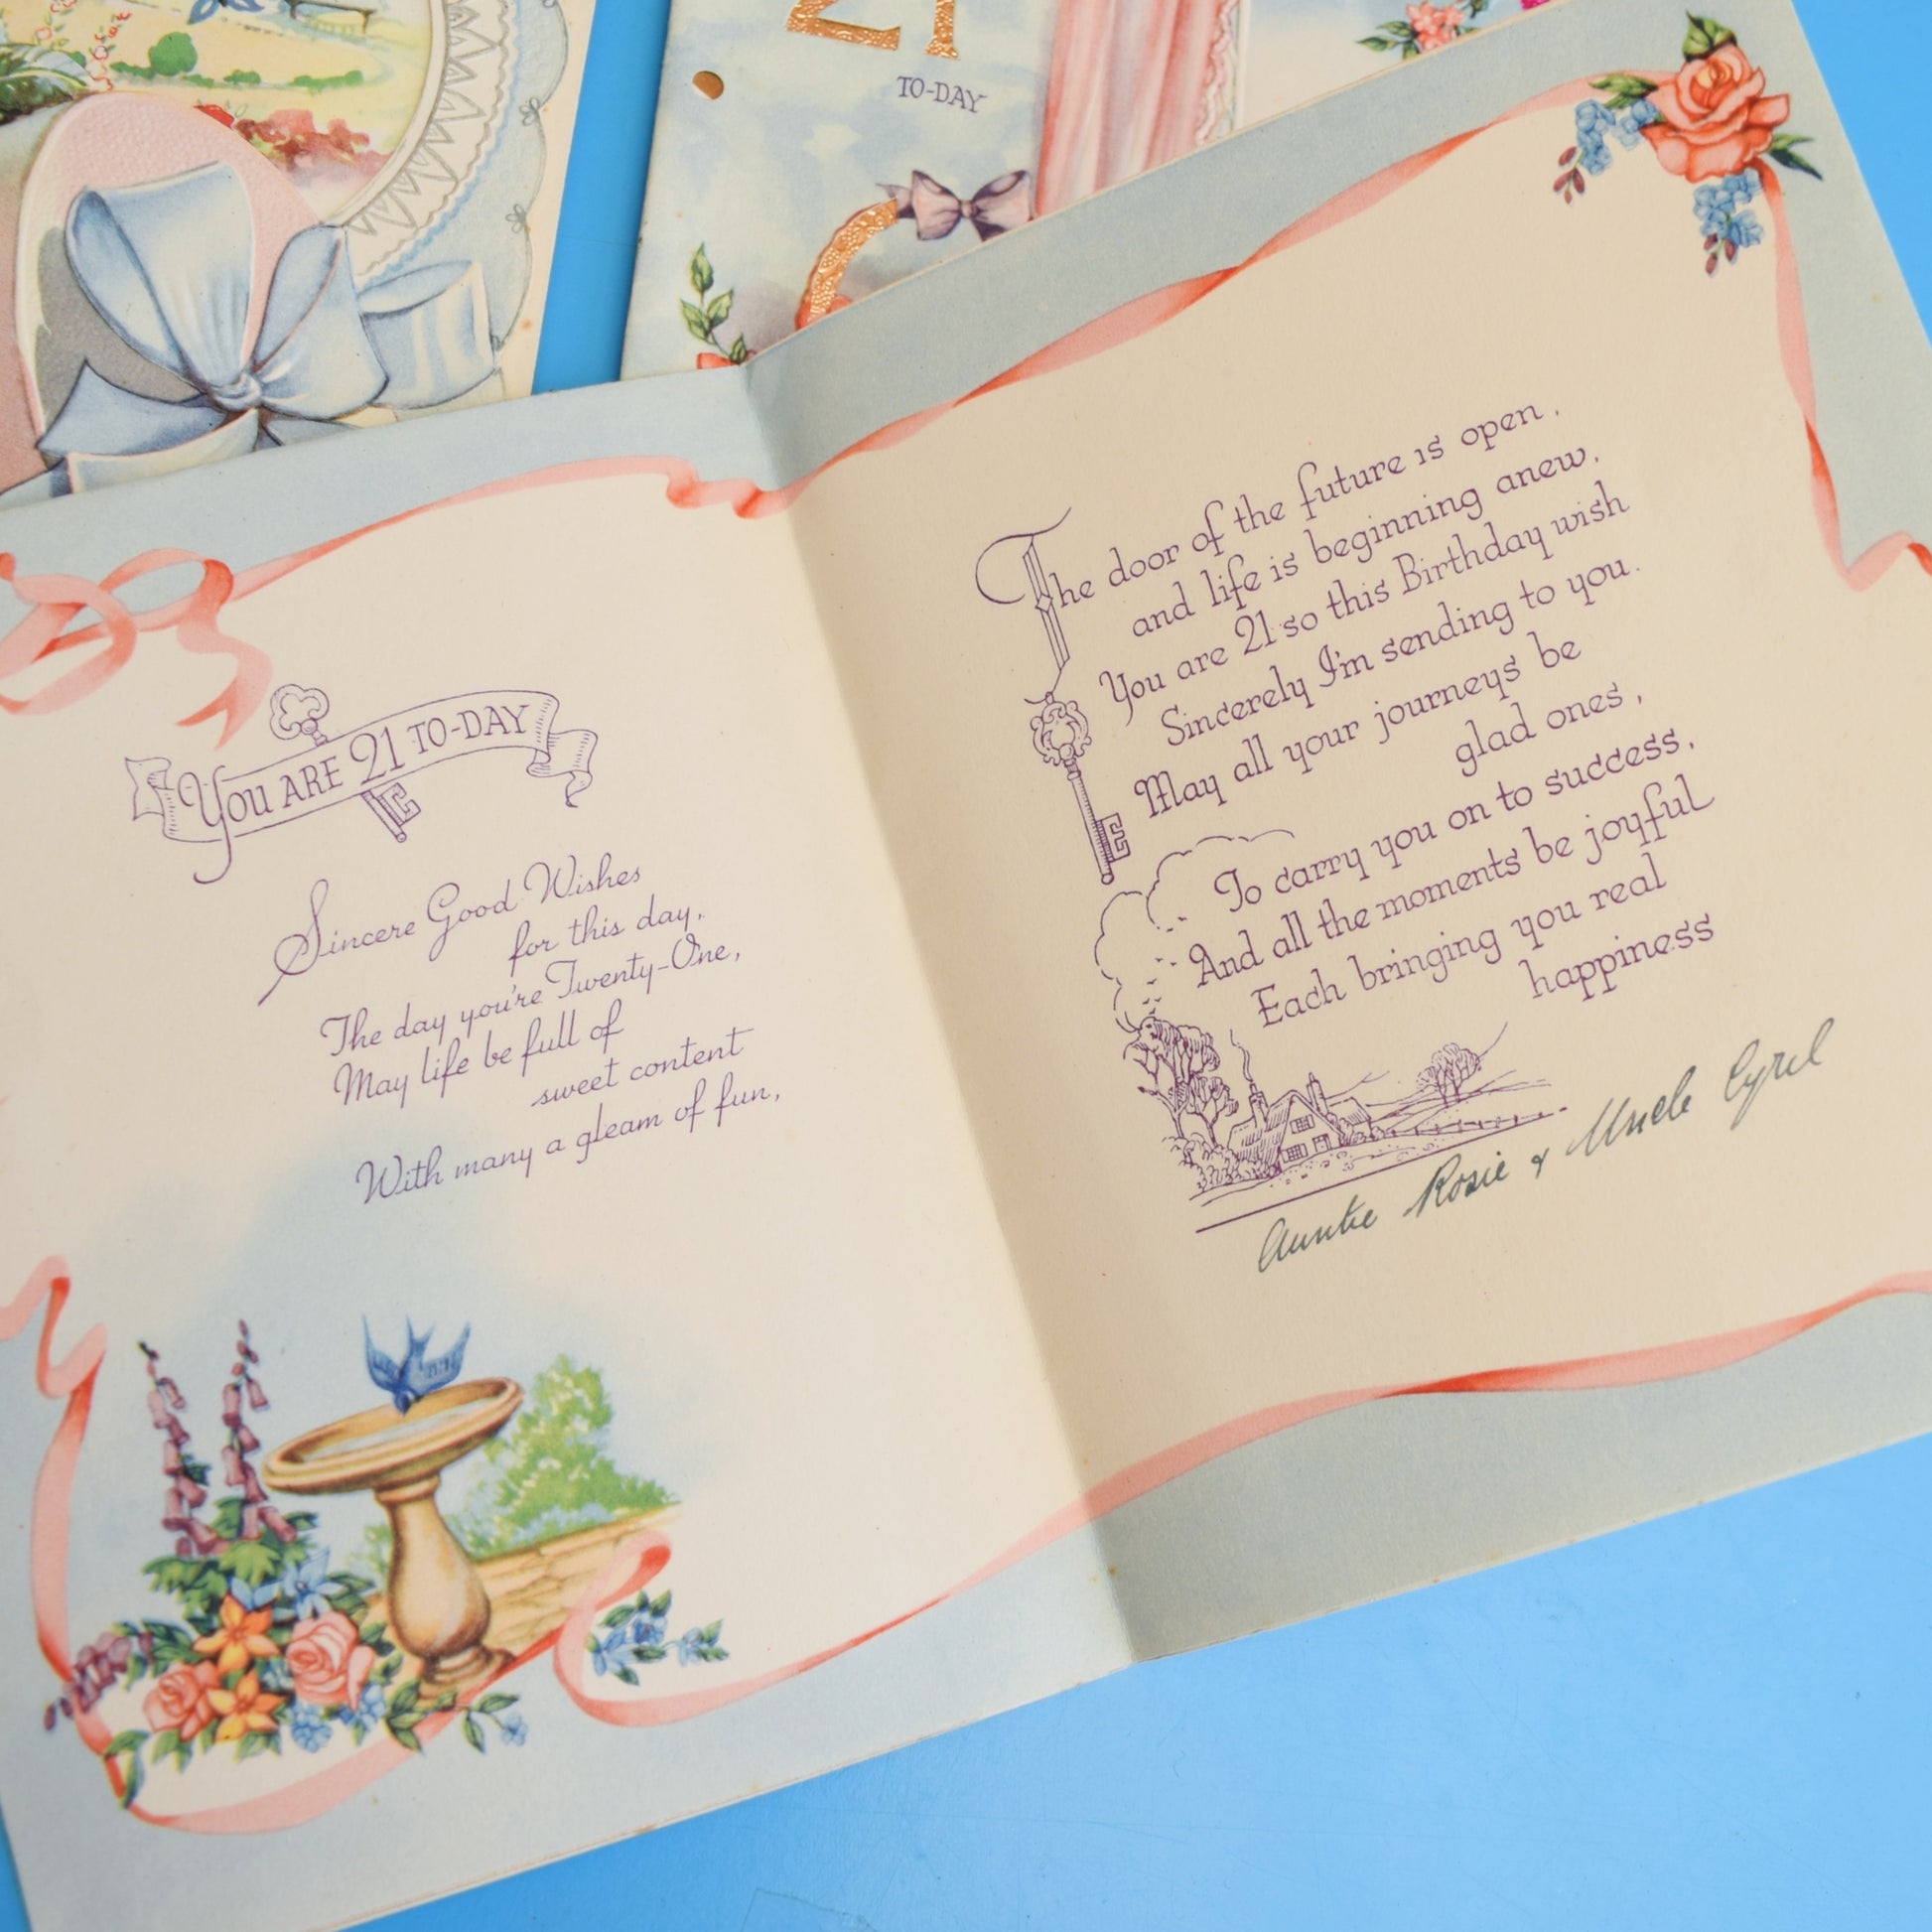 21
TO-DAY
You ARE 21 TO-DAY
Sincere Good Wishes
for this day,
The day you're Twenty-One,
May life be full of
sweet content
With many a gleam of fun,
The door of the future is open,
and life is beginning anew,
You are 21 so this Birthday wish
Sincerely I'm sending to you.
May all your journeys be
glad ones,
To carry you on to success,
And all the moments be joyful
Each bringing you real
happiness
Auntie Rosie & Uncle Cyril